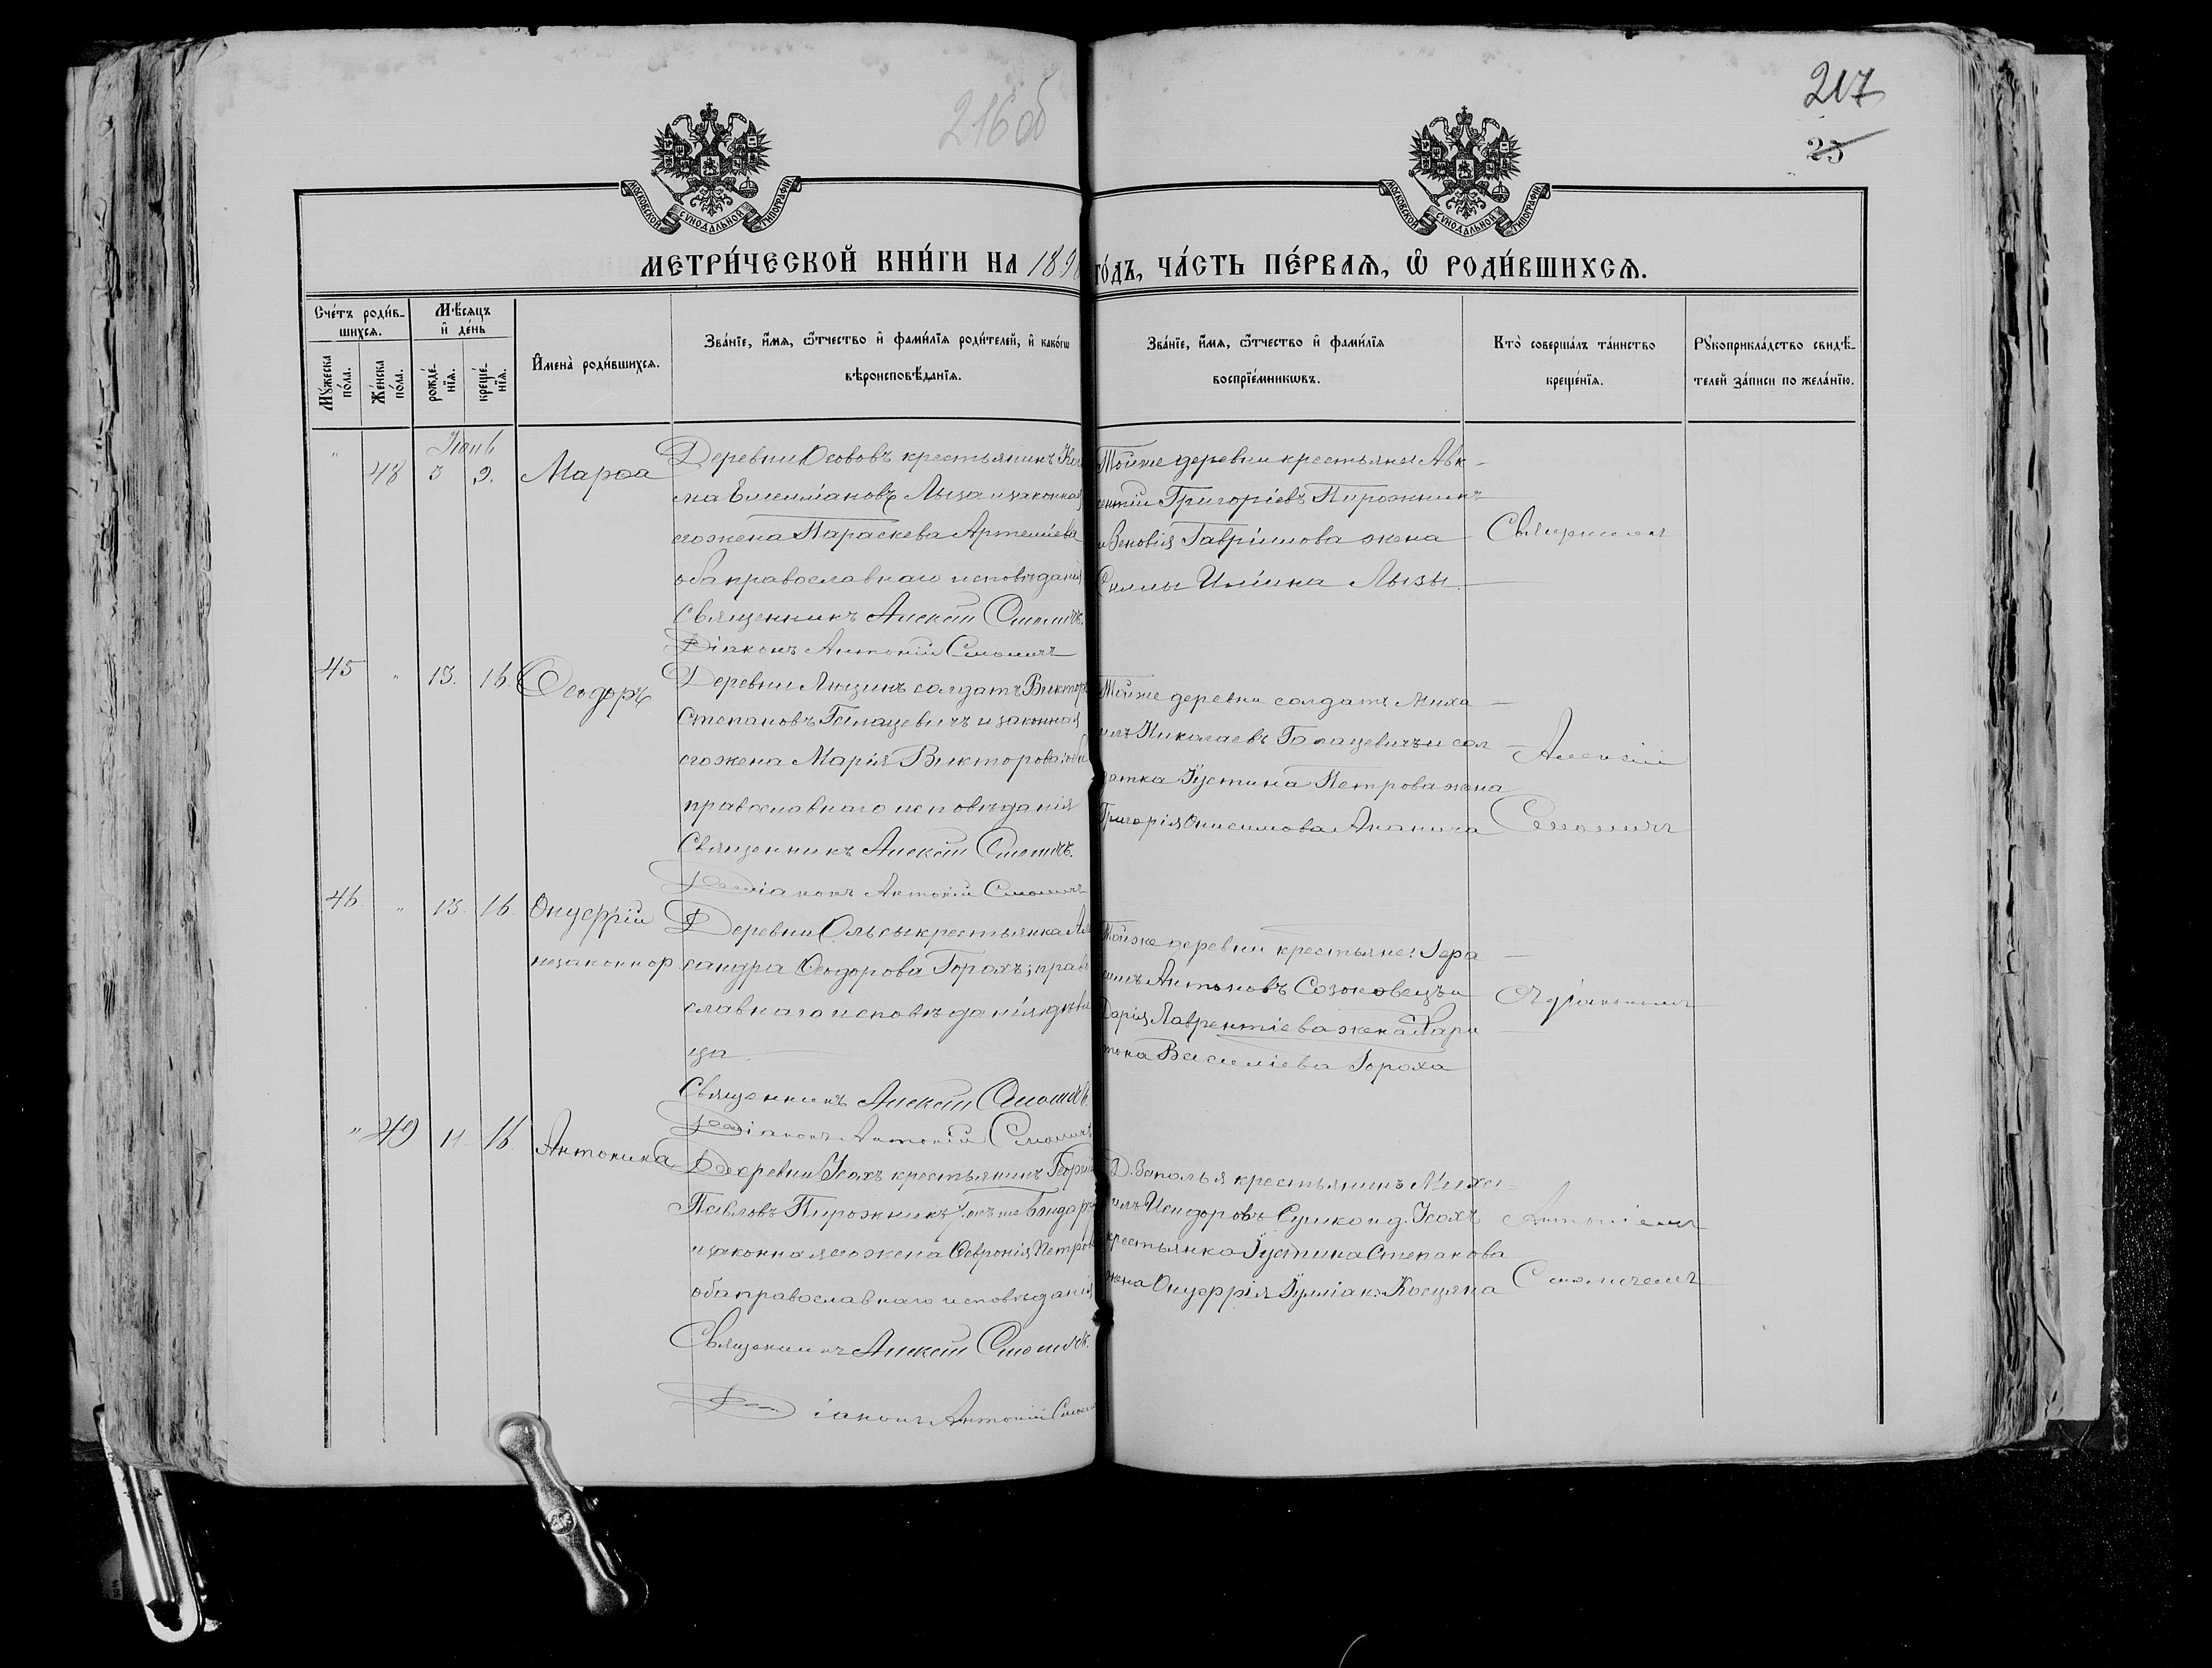 217
25
216 об
МОСКОВСКОЙ СУНОДАЛЬНОЙ ТИПОГРАФІИ
МОСКОВСКОЙ СУНОДАЛЬНОЙ ТИПОГРАФІИ
МЕТРИ́ЧЕСКОЙ КНИ́ГИ НА 189 ГО́ДЪ, ЧА́СТЬ ПЕ́РВАЯ, Ѽ РОДИ́ВШИХСЯ.
Сче́тъ роди́в-
шихся.
Мꙋ́жеска по́ла.
Же́нска по́ла.
Мѣ́сяцъ
и҆ де́нь
рожде́-нїя.
креще́-нїя.
И҆мена̀ роди́вшихся.
Зва́нїе, и҆́мя, ѻ҆́тчество и҆ фами́лїя роди́телей, и҆ како́гѡ
вѣроисповѣ́данїя.
Зва́нїе, и҆́мя, ѻ҆́тчество и҆ фами́лїя
воспрїе́мникѡвъ.
Кто̀ соверша́лъ та́инство
креще́нїя.
Рꙋкоприкла́дство свидѣ́-
телей за́писи по жела́нїю.
Іюнь
" 48 3 9. Марѳа
Деревни Осововъ крестьянинъ Коз
ма Емеліановъ Лыза и законная
его жена Параскева Артеміева
оба православнаго исповѣданія
Священникъ Алексій Смоличъ.
Діаконъ Антоній Смоличъ
Тойже деревни крестьяне: Авк-
ентій Григоріевъ Пирожникъ
и Зеновія Гавріилова жена
Силы Иліина Лызы.
Священникъ
45 " 13. 16 Ѳеодоръ
Деревни Люцинъ солдатъ Викторъ
Степановъ Галацевичъ и законная
его жена Марія Викторова, оба
православнаго исповѣданія
Священникъ Алексій Смоличъ.
Діаконъ Антоній Смоличъ
Тойже деревни солдатъ Миха-
илъ Николаевъ Галацевичъ и сол-
датка Іустина Петрова жена
Григорія Онисимова Ананича
Алексій
Смоличъ
46 " 13. 16. Онуфрій
незаконнор
Деревни Ольсы крестьянка Алек
сандра Ѳеодорова Горохъ; право
славнаго исповѣданія, дѣви
ца
Священникъ Алексій Смоличъ.
Діаконъ Антоній Смоличъ
Тойже деревни крестьяне: Гера-
симъ Антоновъ Созоновецъ и
Дарія Лаврентіева жена Хари
тона Василіева Гороха
съ діакономъ
" 49 11 16. Антонина
Деревни Усохъ крестьянинъ Георгій
Павловъ Пирожникъ, онъ же Бондарь
и законная его жена Ѳевронія Петрова
оба православнаго исповѣданія
Священникъ Алексій Смоличъ.
Діаконъ Антоній Смоличъ
Д. Заполья крестьянинъ Миха-
илъ Исидоровъ и д. Усохъ
крестьянка Іустина Степанова
жена Онуфрія
Антоніемъ
Смоличемъ